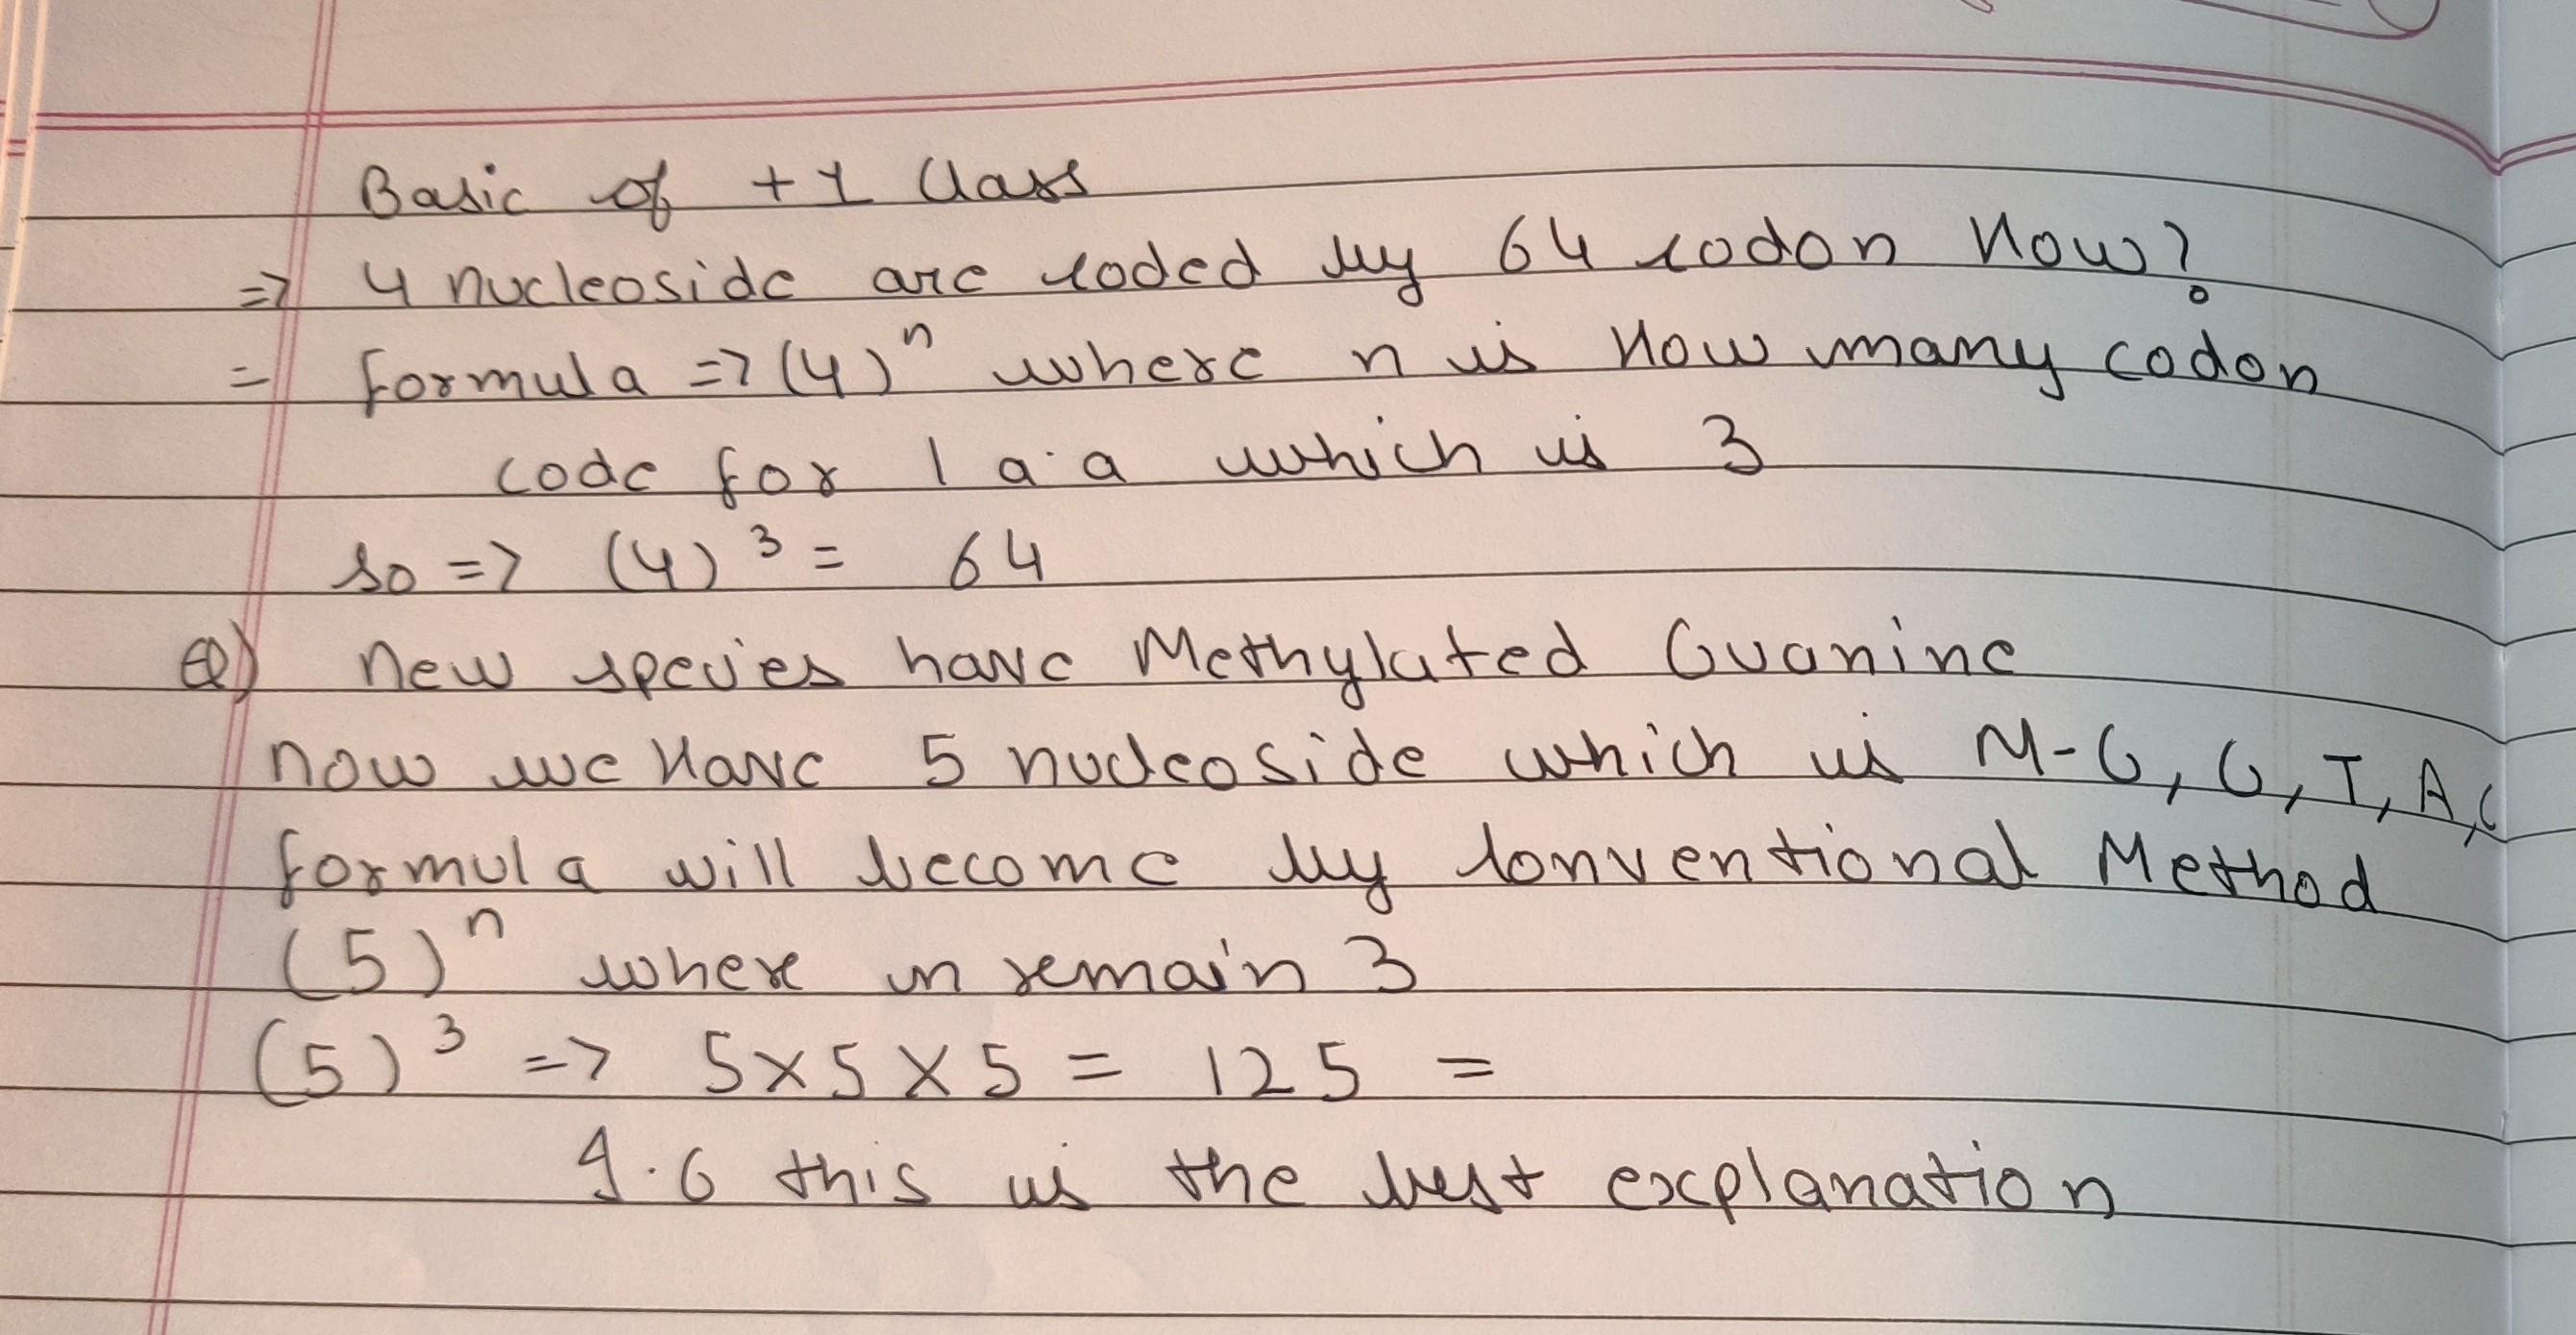 Basic of +1 Class
=> 4 nucleoside are coded by 64 codon How?
= formula => (4)ⁿ where n is How many codon
code for 1 a.a which is 3
so => (4)³ = 64
Q) New species have Methylated Guanine
now we Have 5 nucleoside which is M-G, G, T, A, C
formula will become by Conventional Method
(5)ⁿ where n remain 3
(5)³ => 5x5x5 = 125 =
I.G this is the best explanation